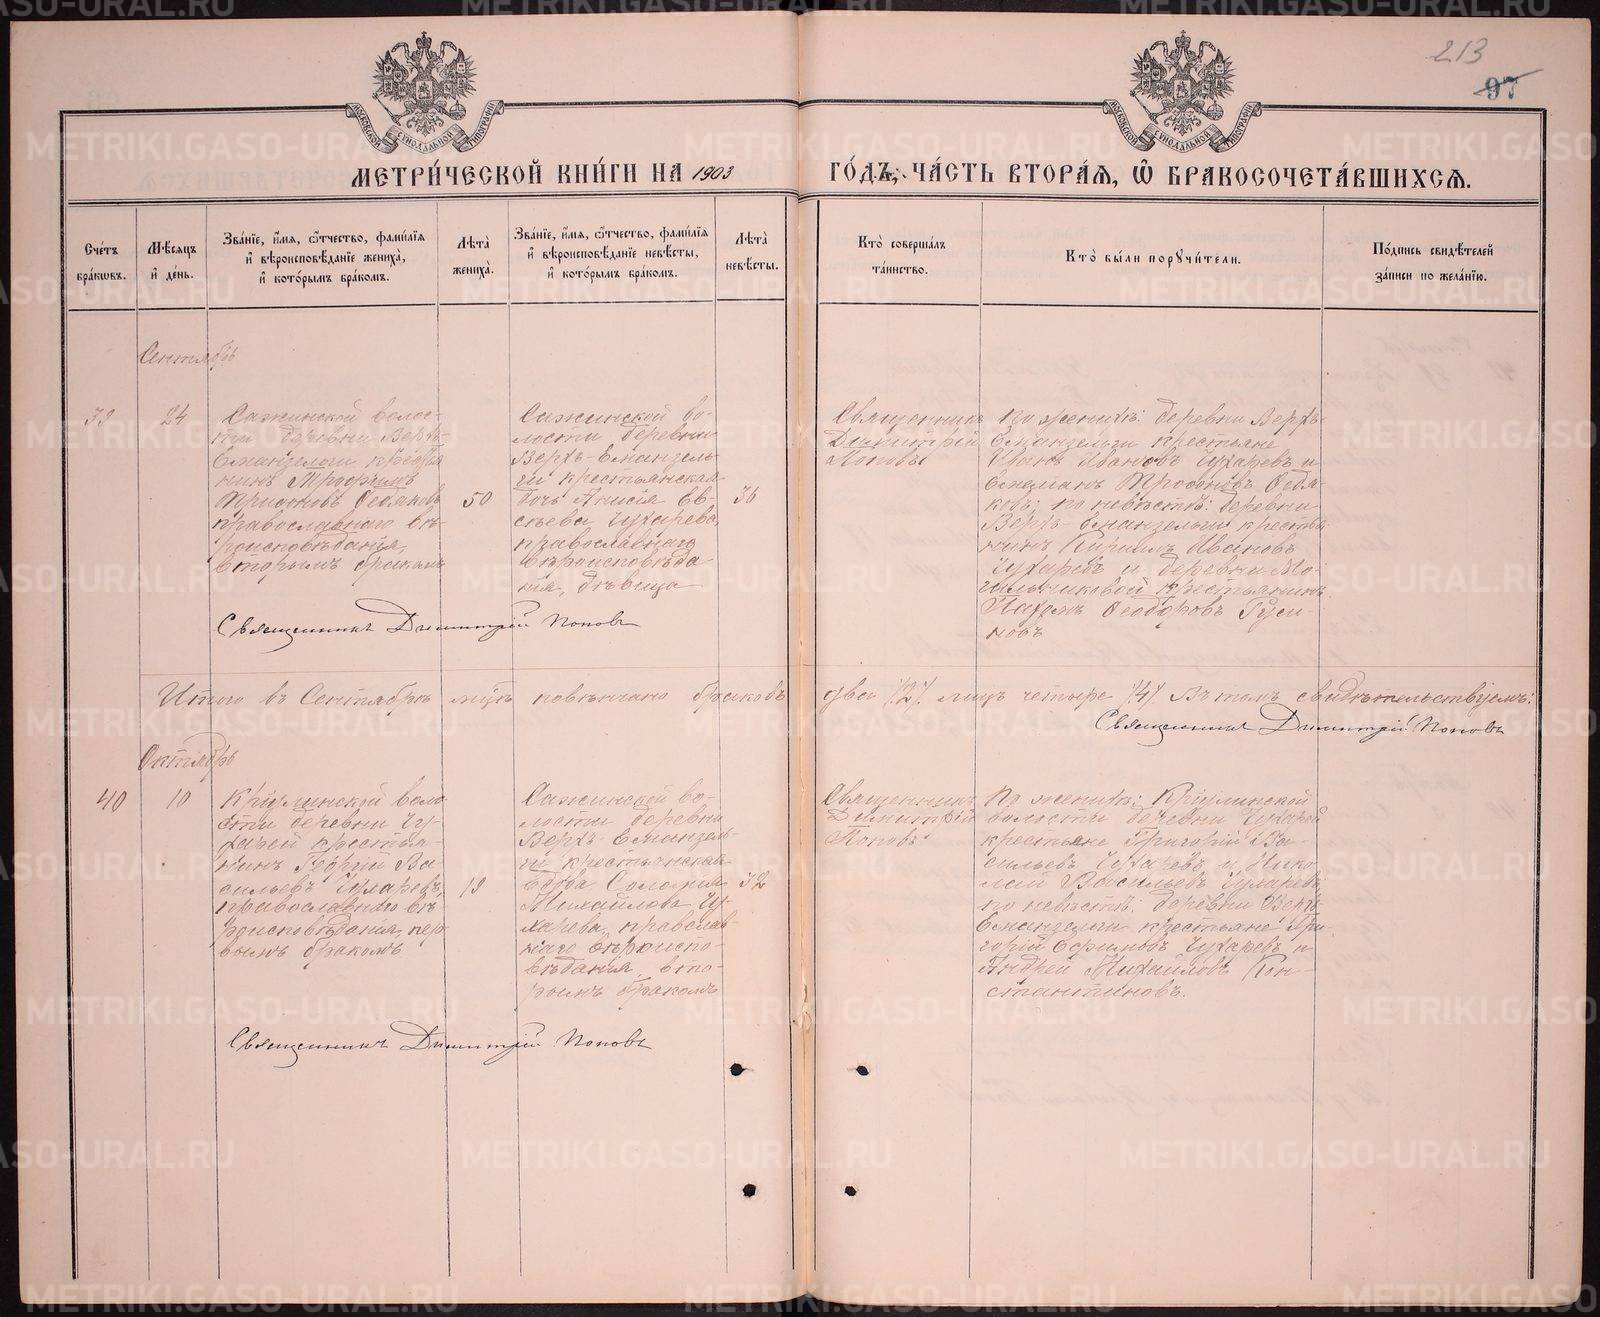 213
97
МЕТРИ́ЧЕСКОЙ КНИ́ГИ НА 1903 ГО́ДЪ, ЧА́СТЬ ВТОРА́Я, Ѡ БРАКОСОЧЕТА́ВШИХСЯ.
Сче́тъ бра́кѡвъ.
Мѣ́сяцъ и҆ де́нь.
Зва́нїе, и҆́мя, ѻ҆́тчество, фами́лїя и҆ вѣроисповѣ́данїе жениха̀, и҆ кото́рымъ бра́комъ.
Лѣта̀ жениха̀.
Зва́нїе, и҆́мя, ѻ҆́тчество, фами́лїя и҆ вѣроисповѣ́данїе невѣ́сты, и҆ кото́рымъ бра́комъ.
Лѣта̀ невѣ́сты.
Кто̀ соверша́лъ та́инство.
Кто̀ бы́ли порꙋчи́тели.
По́дпись свидѣ́телей за́писи по жела́нїю.
Сентябрь
39
24
Сажинской волос-
ти деревни Верхъ-
Еманзельги крестья
нинъ Трофимъ
Тристновъ Ѳедяковъ
православнаго вѣ-
роисповѣданія,
вторымъ бракомъ
50
Сажинской во-
лости деревни
Верхъ-Еманзель-
ги крестьянская
дочь Анисія Ев-
сѣева Чухарева,
православнаго
вѣроисповѣда-
нія, дѣвица
36
Священникъ
Димитрій
Поповъ
По женихѣ: деревни Верхъ
Еманзельги крестьяне
Иванъ Ивановъ Чухаревъ и
Трофимовъ Ѳедя-
ковъ; по невѣстѣ: деревни
Верхъ-Еманзельги крестья
нинъ Кириллъ Ивановъ
Чухаревъ и деревни Мо-
гильниковой крестьянинъ
Пахомъ Ѳеодоровъ Руси-
новъ
Священникъ Димитрій Поповъ
Итого въ Сентябрѣ м-цѣ повѣнчано браковъ два /2/ лицъ четыре /4/. Въ томъ свидѣтельствуемъ:
Священникъ Димитрій Поповъ
Октябрь
40
10
Криулинской воло
сти деревни Чу-
харей крестья-
нинъ Георгій Ва-
сильевъ Чухаревъ,
православнаго вѣ-
роисповѣданія, пер
вымъ бракомъ
19
Сажинской во-
лости деревни
Верхъ-Еманзель-
ги крестьянская
вдова Соломія
Михайлова Чу-
харева, православ-
наго вѣроиспо-
вѣданія, вто-
рымъ бракомъ
32
Священникъ
Димитрій
Поповъ
По женихѣ: Криулинской
волости деревни Чухарей
крестьяне Григорій Ва-
сильевъ Чухаревъ и Нико-
лай Васильевъ Чухаревъ
по невѣстѣ: деревни Верхъ
Еманзельги крестьяне Гри-
горій Ефимовъ Чухаревъ и
Андрей Михайловъ Кон-
стантиновъ.
Священникъ Димитрій Поповъ
METRIKI.GASO-URAL.RU